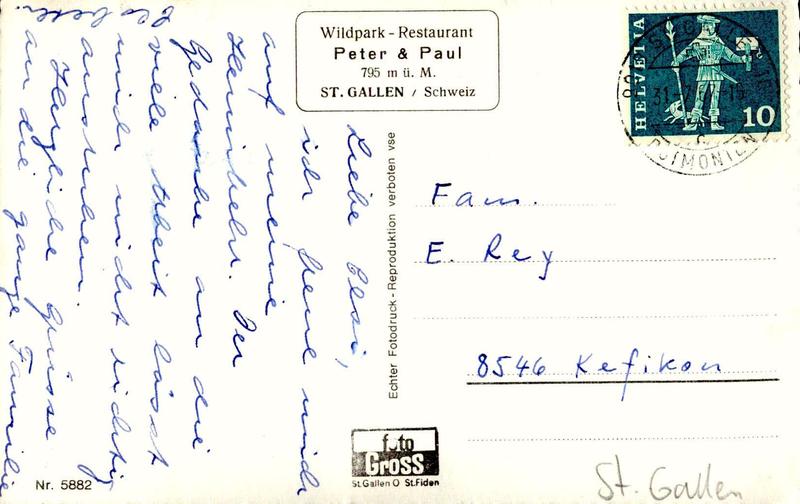 Wildpark - Restaurant
Peter & Paul
795 m ü. M.
ST. GALLEN / Schweiz
HELVETIA
10
31-7.67-15
Liebe Elsi,
ich freue mich
auf meine
Heimkehr. Der
Gedanke an die
viele Arbeit lässt
mich nicht richtig
ausruhen.
Herzliche Grüsse
an die ganze Familie
Echter Fotodruck - Reproduktion verboten vse
Fam.
E. Rey
8546 Kefikon
foto
GROSS
St.Gallen O St.Fiden
Nr. 5882
St. Gallen